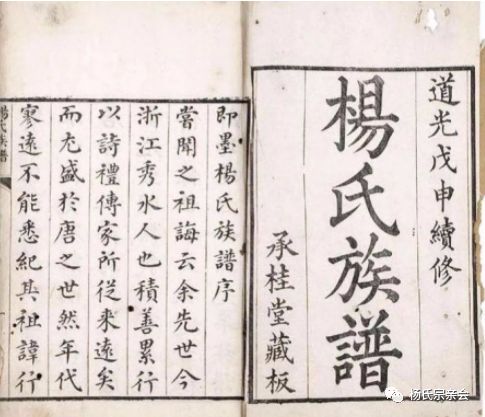 道光戊申續修
楊氏族譜
承桂堂藏板
即墨楊氏族譜序
嘗聞之祖誨云余先世今
浙江秀水人也積善累行
以詩禮傳家所從來遠矣
而尤盛於唐之世然年代
寥遠不能悉紀其祖諱行
楊氏族譜
杨氏宗亲会